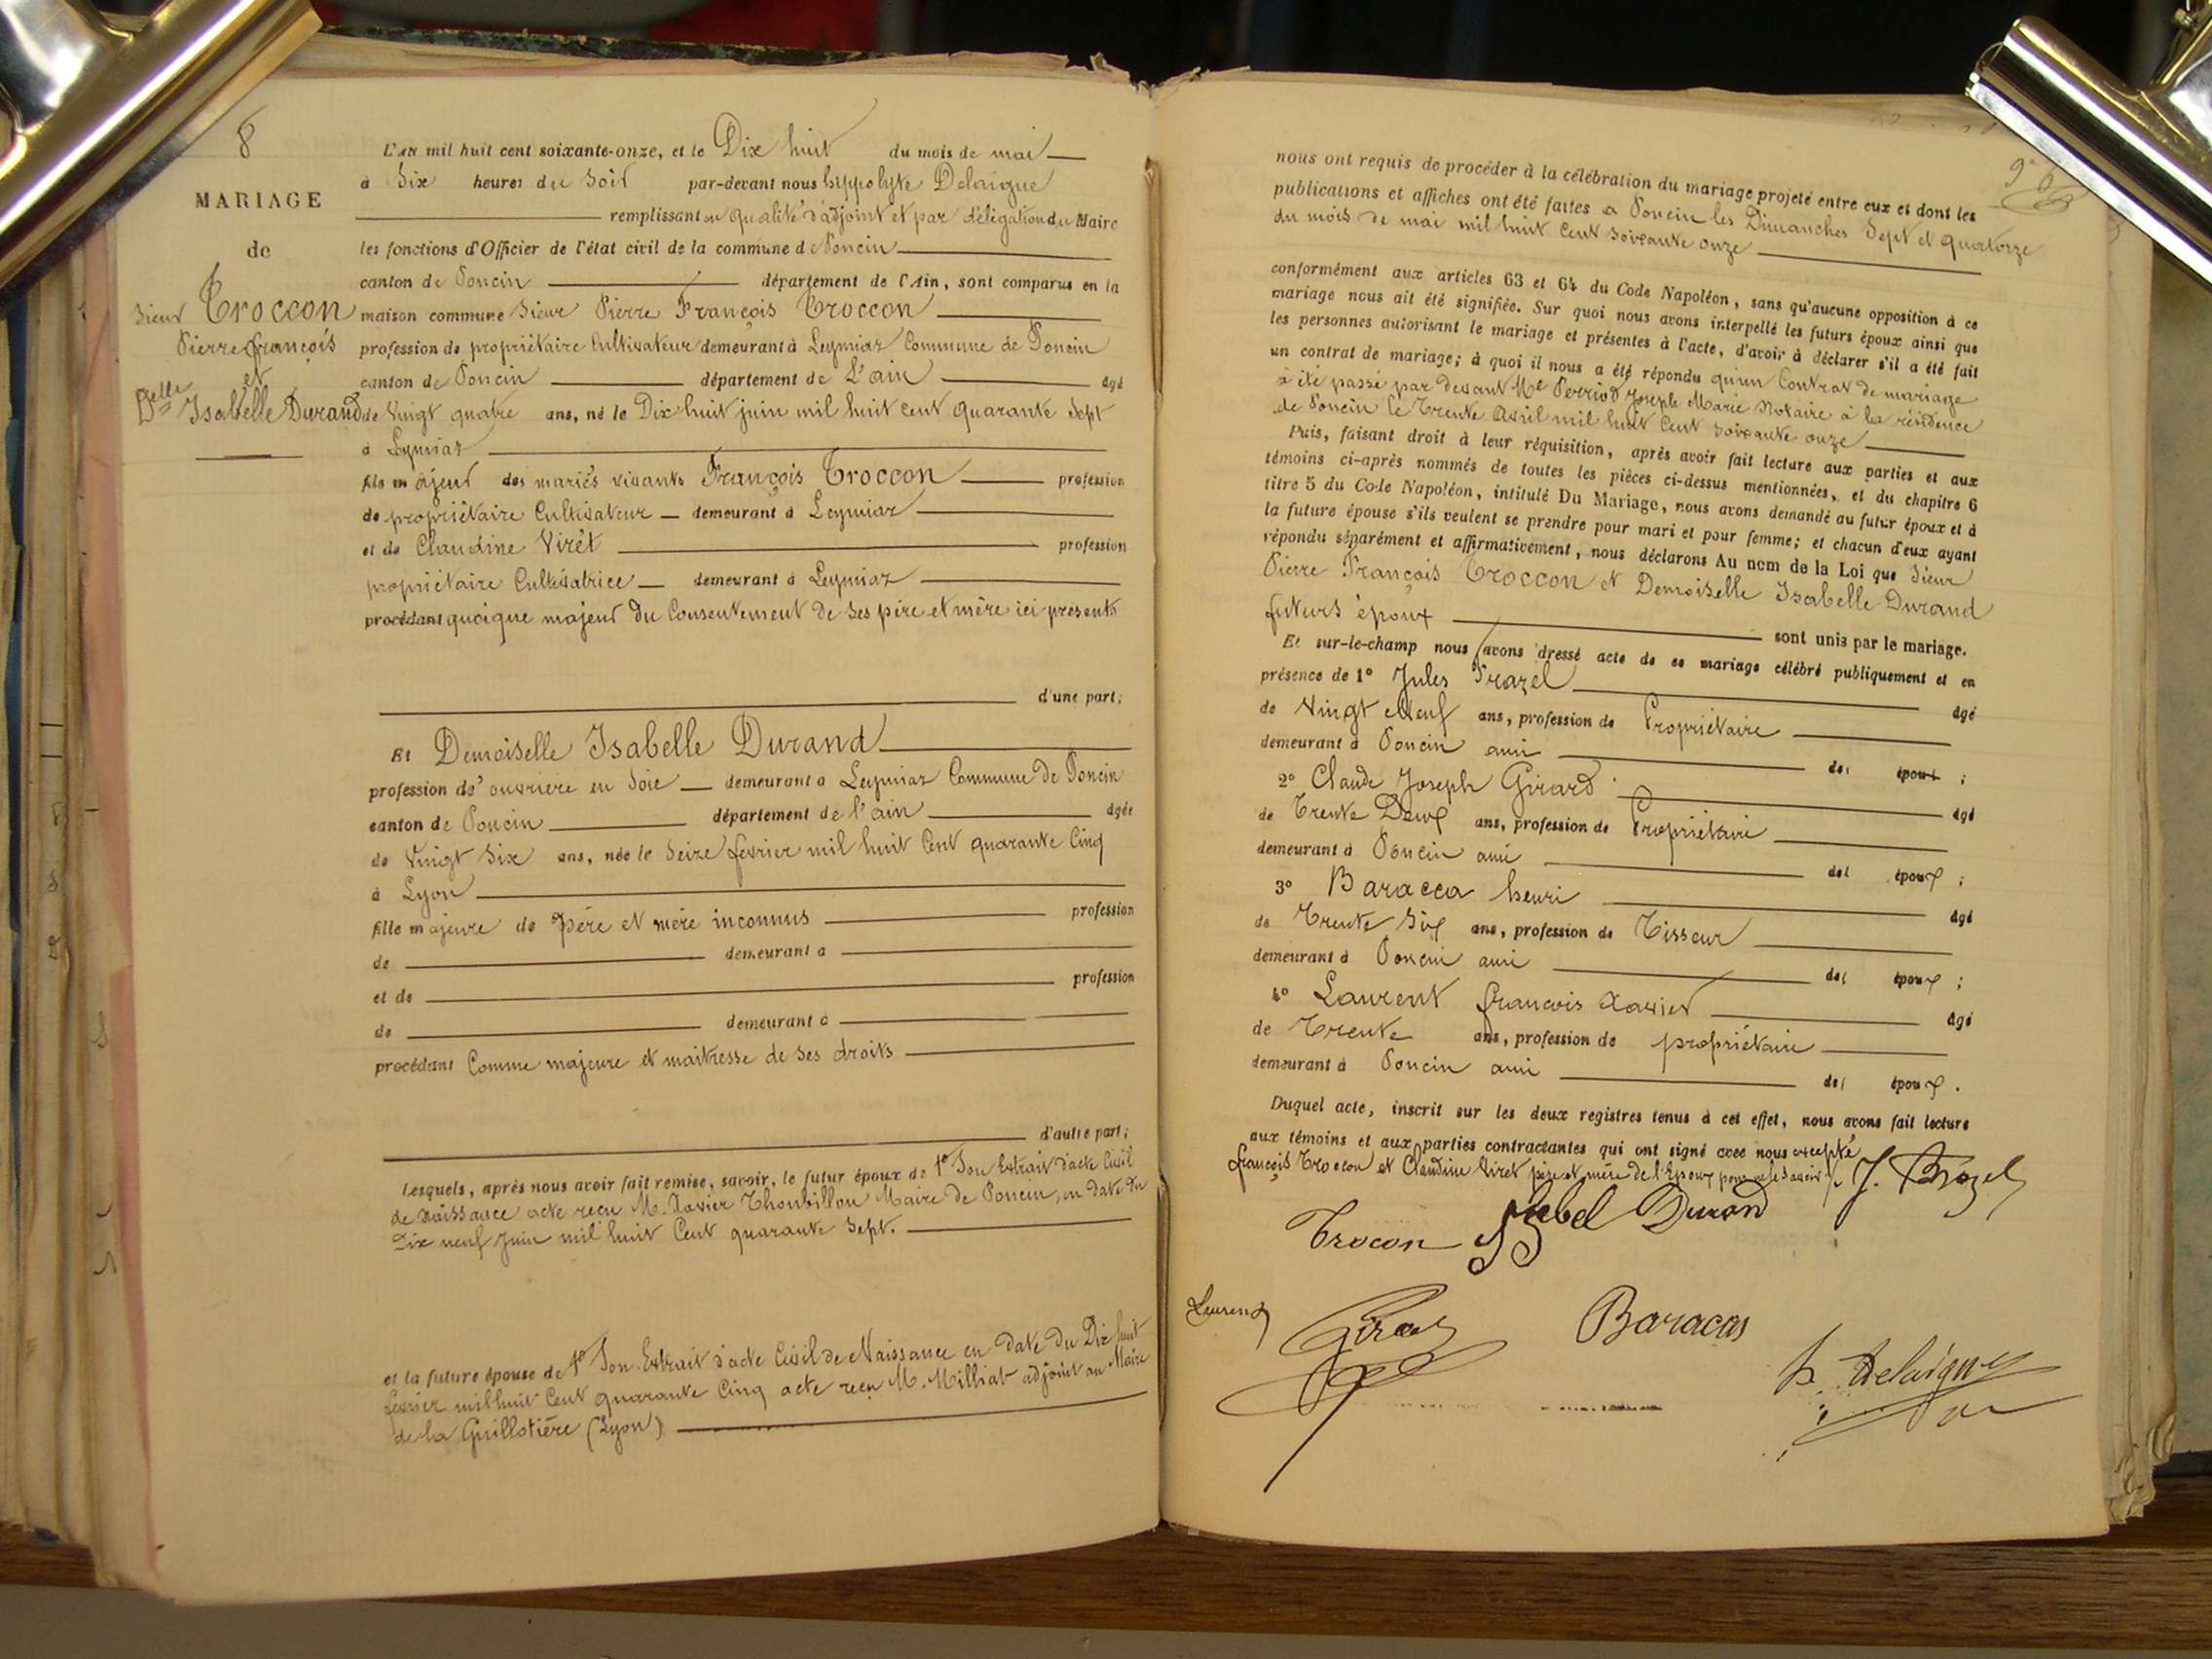 8
MARIAGE
de
Sieur Troccon
Pierre françois
et
Delle Isabelle Durand
L'AN mil huit cent soixante-onze, et le Dix huit du mois de mai
à Six heures du Soir par-devant nous hippolyte Delaigue
remplissant en qualité d'adjoint et par délégation du Maire
les fonctions d'Officier de l'état civil de la commune de Poncin
canton de Poncin département de l'Ain, sont comparus en la
maison commune Sieur Pierre François Troccon
profession de propriétaire Cultivateur demeurant à Leymiaz Commune de Poncin
canton de Poncin département de L'ain âgé
de Vingt quatre ans, né le Dix huit juin mil huit cent quarante Sept
à Leymiaz
fils majeur des mariés vivants François Troccon profession
de propriétaire Cultivateur demeurant à Leymiaz
et de Claudine Virêt profession
propriétaire Cultivatrice demeurant à Leymiaz
procédant quoique majeur du Consentement de Ses père et mère ici présents
d'une part;
Et Demoiselle Isabelle Durand
profession d'ouvrière en Soie demeurant a Leymiaz Commune De Poncin
canton de Poncin département de l'ain âgée
de Vingt Six ans, née le Seize fevrier mil huit Cent quarante Cinq
à Lyon
fille majeure de Père et mère inconnus profession
de demeurant à
et de profession
de demeurant à
procédant Comme majeure et maitresse de Ses droits
d'autre part;
Lesquels, après nous avoir fait remise, savoir, le futur époux de 1° Son Extrait d'acte Civil
de naissance acte reçu M. Xavier Thoubillon Maire de Poncin, en date du
Dix neuf Juin mil huit Cent quarante Sept.
et la future épouse de 1° Son Extrait d'acte Civil de Naissance en date du Dix huit
fevrier mil huit Cent quarante Cinq acte reçu M. Milliat adjoint au Maire
de la Guillotière (Lyon)
nous ont requis de procéder à la célébration du mariage projeté entre eux et dont les
publications et affiches ont été faites a Poncin les Dimanches Sept et quatorze
du mois de mai mil huit Cent Soixante onze
conformément aux articles 63 et 64 du Code Napoléon, sans qu'aucune opposition à ce
mariage nous ait été signifiée. Sur quoi nous avons interpellé les futurs époux ainsi que
les personnes autorisant le mariage et présentes à l'acte, d'avoir à déclarer s'il a été fait
un contrat de mariage; à quoi il nous a été répondu qu'un Contrat de mariage
à été passé par devant Me Perriod Joseph Marie Notaire à la résidence
de Poncin le Trente Avril mil huit Cent Soixante onze
Puis, faisant droit à leur réquisition, après avoir fait lecture aux parties et aux
témoins ci-après nommés de toutes les pièces ci-dessus mentionnées, et du chapitre 6
titre 5 du Code Napoléon, intitulé Du Mariage, nous avons demandé au futur époux et à
la future épouse s'ils veulent se prendre pour mari et pour femme; et chacun d'eux ayant
répondu séparément et affirmativement, nous déclarons Au nom de la Loi que Sieur
Pierre François Troccon et Demoiselle Isabelle Durand
futurs époux sont unis par le mariage.
Et sur-le-champ nous avons dressé acte de ce mariage célébré publiquement et en
présence de 1° Jules Prazel âgé
de Vingt Neuf ans, profession de Propriétaire
demeurant à Poncin ami des époux ;
2° Claude Joseph Girard âgé
de Trente Deux ans, profession de Propriétaire
demeurant à Poncin ami des époux ;
3° Baracca henri âgé
de Trente Six ans, profession de Tisseur
demeurant à Poncin ami des époux ;
4° Laurent françois Xavier âgé
de Trente ans, profession de propriétaire
demeurant à Poncin ami des époux .
Duquel acte, inscrit sur les deux registres tenus à cet effet, nous avons fait lecture
aux témoins et aux parties contractantes qui ont signé avec nous excepté
françois Troccon et Claudine Viret père et mère de l'Epoux pour ne le Savoir
Trocon Isabel Durand
Laurent Baracas
h. Delaigue